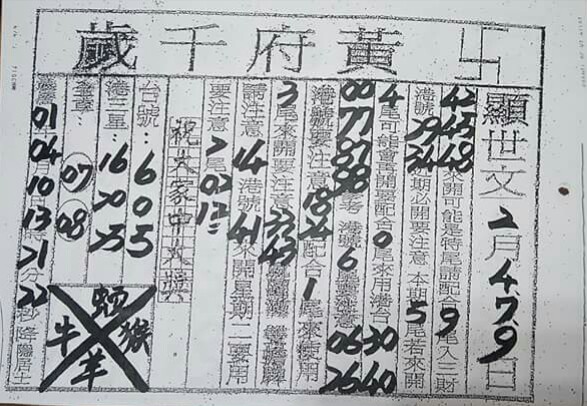 卍 黃府千歲
顯世文 2月4.7.9日
42 45 48 來開可能是特尾請配合9尾入三財
港號 39 34 期必開要注意 本期5尾若來開
4尾可能會再開請配合0尾來用港台 30 40
00 77 87 98 參考 港號 6 06 26
港號要注意 18 24 配合1尾來使用
3尾來開要注意 33 43
請注意 14 港號 41 來開星期二要用
要注意 2尾 02 12
祝大家中大獎
台號： 6 0 5
港二星： 16 20 25
07 08
01 04月10 13時21分22秒降鸞居士
蛇 猴 羊 牛